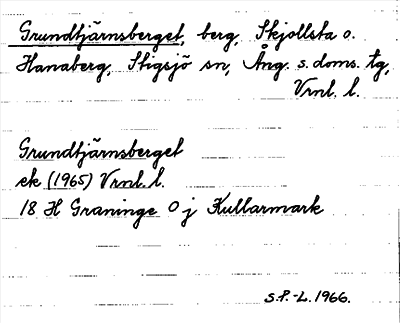 Grundtjärnsberget, berg, Skjollsta o.
Hanaberg, Stigsjö sn, Ång. s. doms. tg,
Vrnl. l.
Grundtjärnsberget
ek (1965) Vrnl. l.
18 H Graninge 0 j Kullarmark
S.P.-L. 1966.